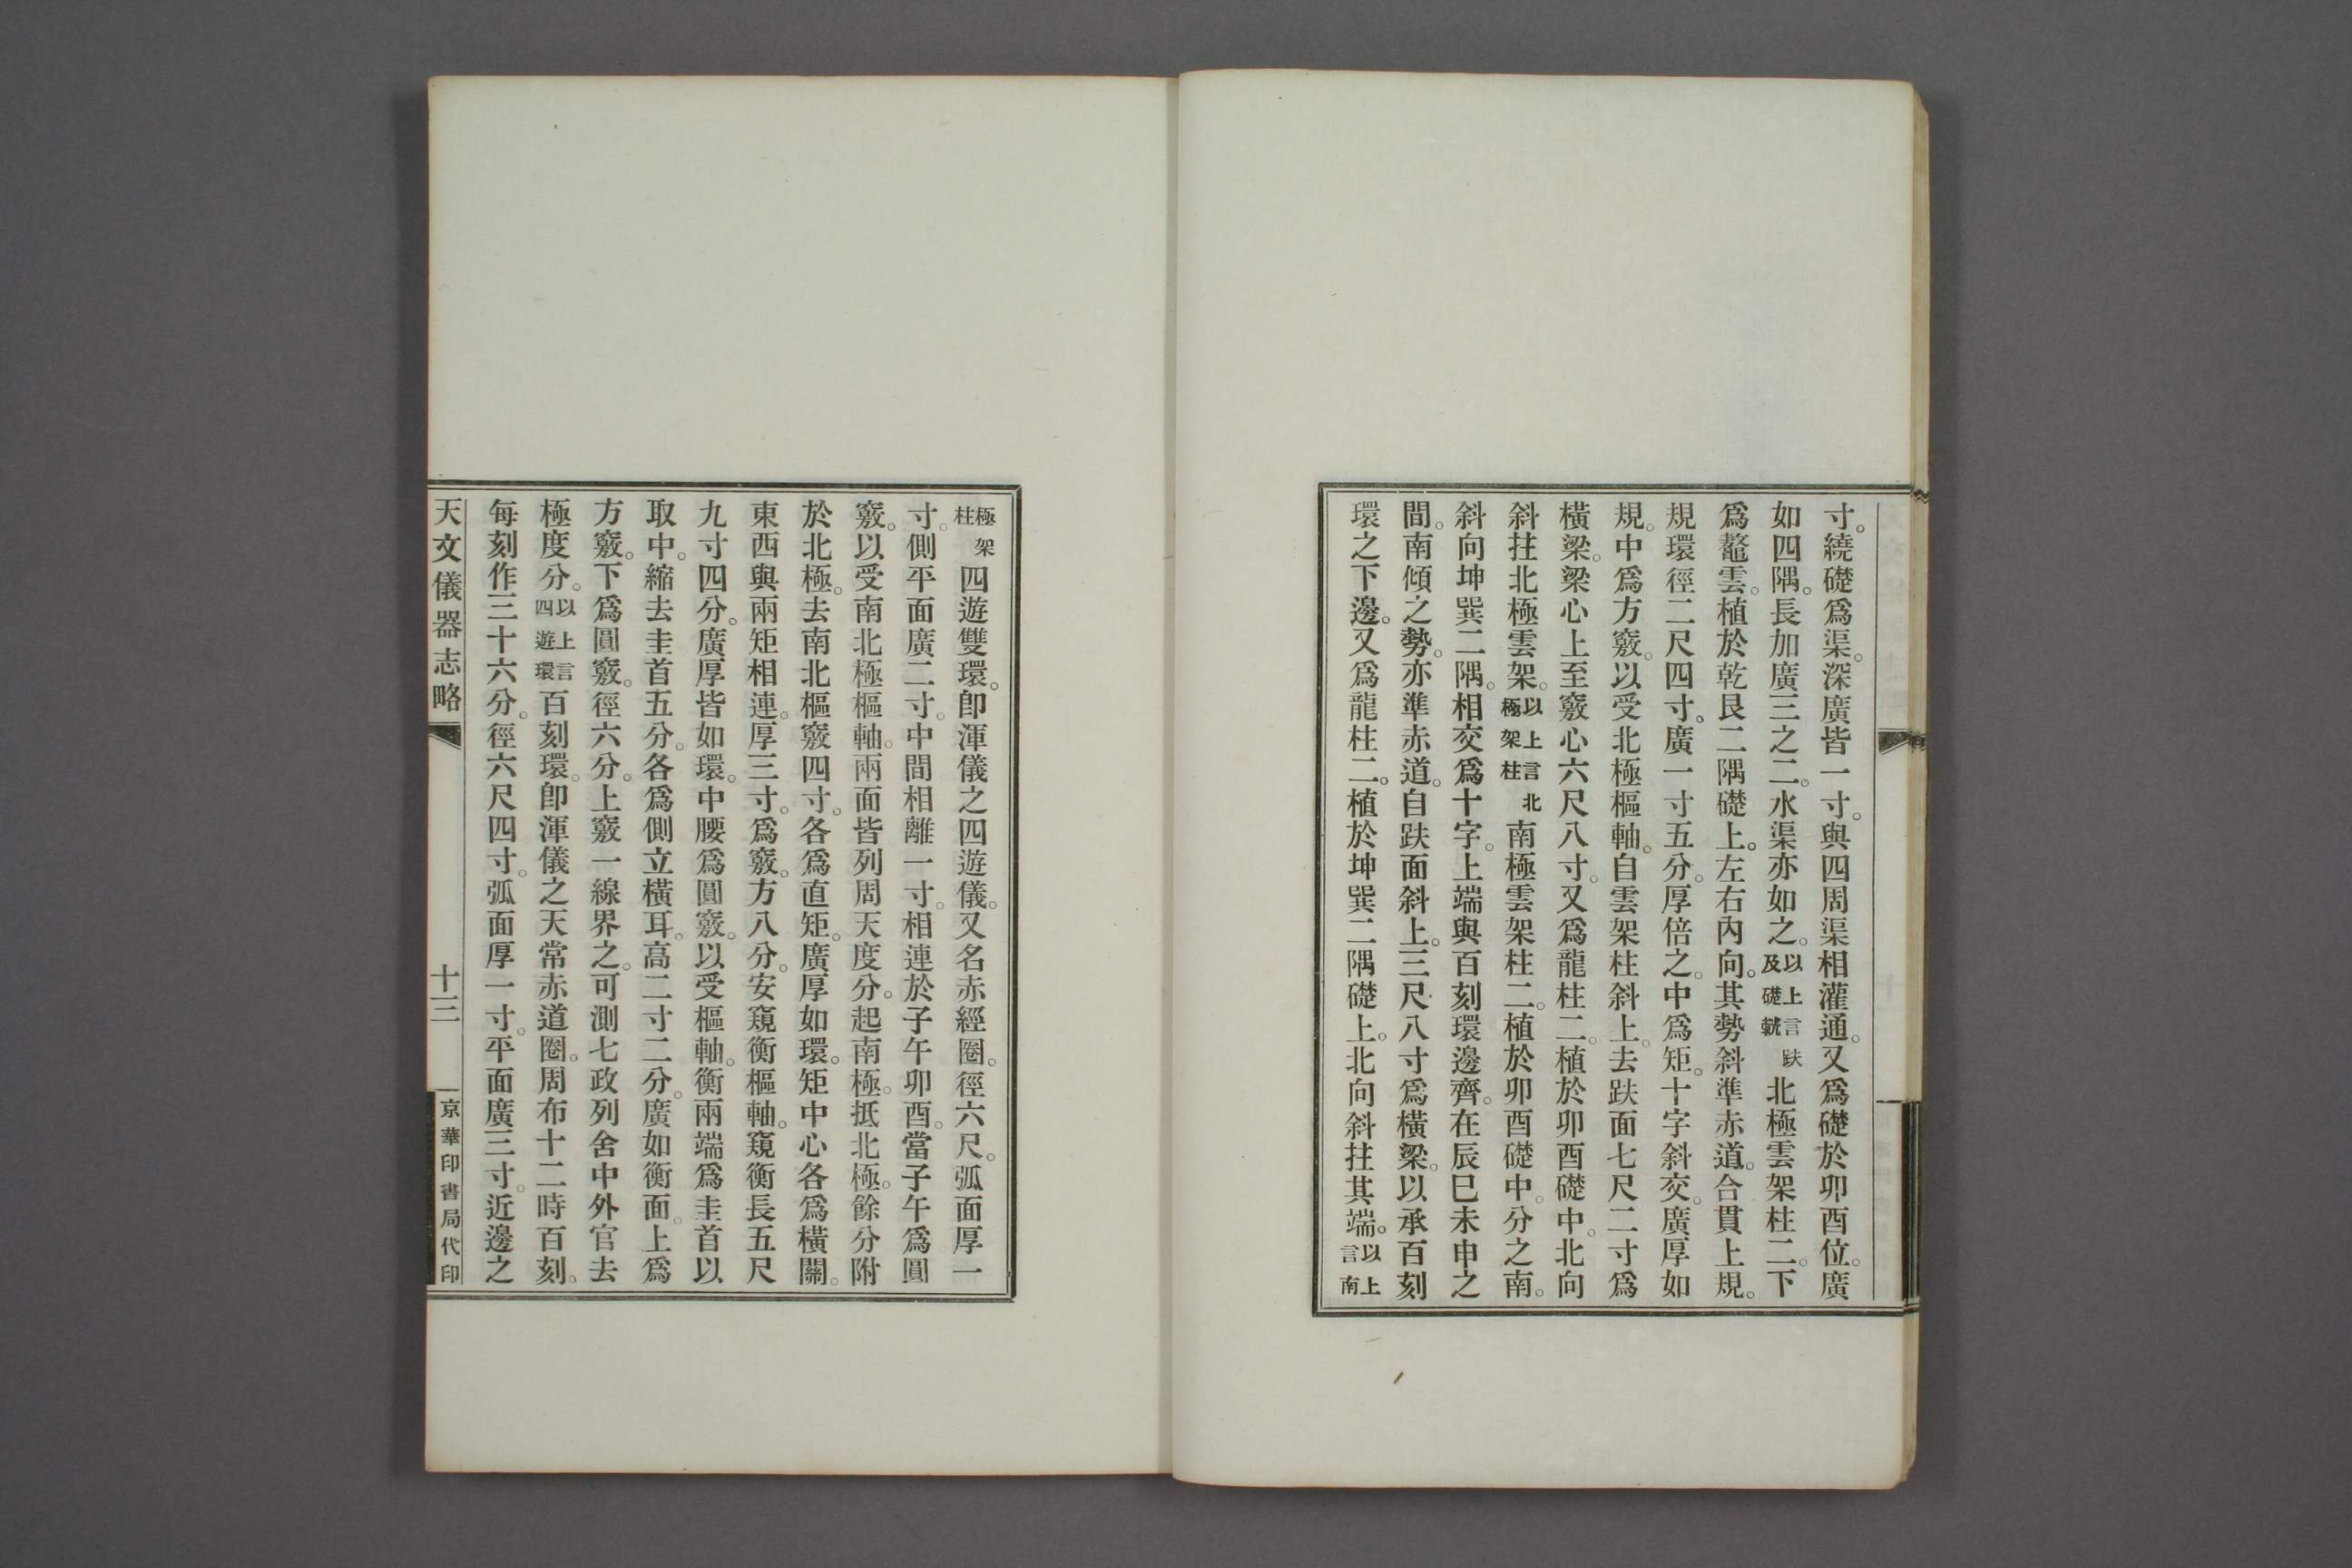 寸。繞礎爲渠。深廣皆一寸。與四周渠相灌通。又爲礎於卯酉位。廣
如四隅。長加廣三之二。水渠亦如之。以上言趺及礎𨋎北極雲架柱二。下
爲鼇雲。植於乾艮二隅礎上。左右內向。其勢斜準赤道。合貫上規。
規環徑二尺四寸。廣一寸五分。厚倍之。中爲矩。十字斜交。廣厚如
規。中爲方竅。以受北極樞軸。自雲架柱斜上。去趺面七尺二寸爲
橫梁。梁心上至竅心六尺八寸。又爲龍柱二。植於卯酉礎中。北向
斜拄北極雲架。以上言北極架柱南極雲架柱二。植於卯酉礎中。分之南。
斜向坤巽二隅。相交爲十字。上端與百刻環邊齊。在辰巳未申之
間。南傾之勢。亦準赤道。自趺面斜上。三尺八寸爲橫梁。以承百刻
環之下邊。又爲龍柱二。植於坤巽二隅礎上。北向斜拄其端。以上言南
極架柱四遊雙環。卽渾儀之四遊儀。又名赤經圈。徑六尺。弧面厚一
寸。側平面廣二寸。中間相離一寸。相連於子午卯酉。當子午爲圓
竅。以受南北極樞軸。兩面皆列周天度分。起南極。抵北極。餘分附
於北極。去南北樞竅四寸。各爲直矩。廣厚如環。矩中心各爲橫關。
東西與兩矩相連。厚三寸。爲竅。方八分。安窺衡樞軸。窺衡長五尺
九寸四分。廣厚皆如環。中腰爲圓竅。以受樞軸。衡兩端爲圭首以
取中。縮去圭首五分。各爲側立橫耳。高二寸二分。廣如衡面。上爲
方竅。下爲圓竅。徑六分。上竅一線界之。可測七政列舍中外官去
極度分。以上言四遊環百刻環。卽渾儀之天常赤道圈。周布十二時百刻。
每刻作三十六分。徑六尺四寸。弧面厚一寸。平面廣三寸。近邊之
天文儀器志略
十三
京華印書局代印